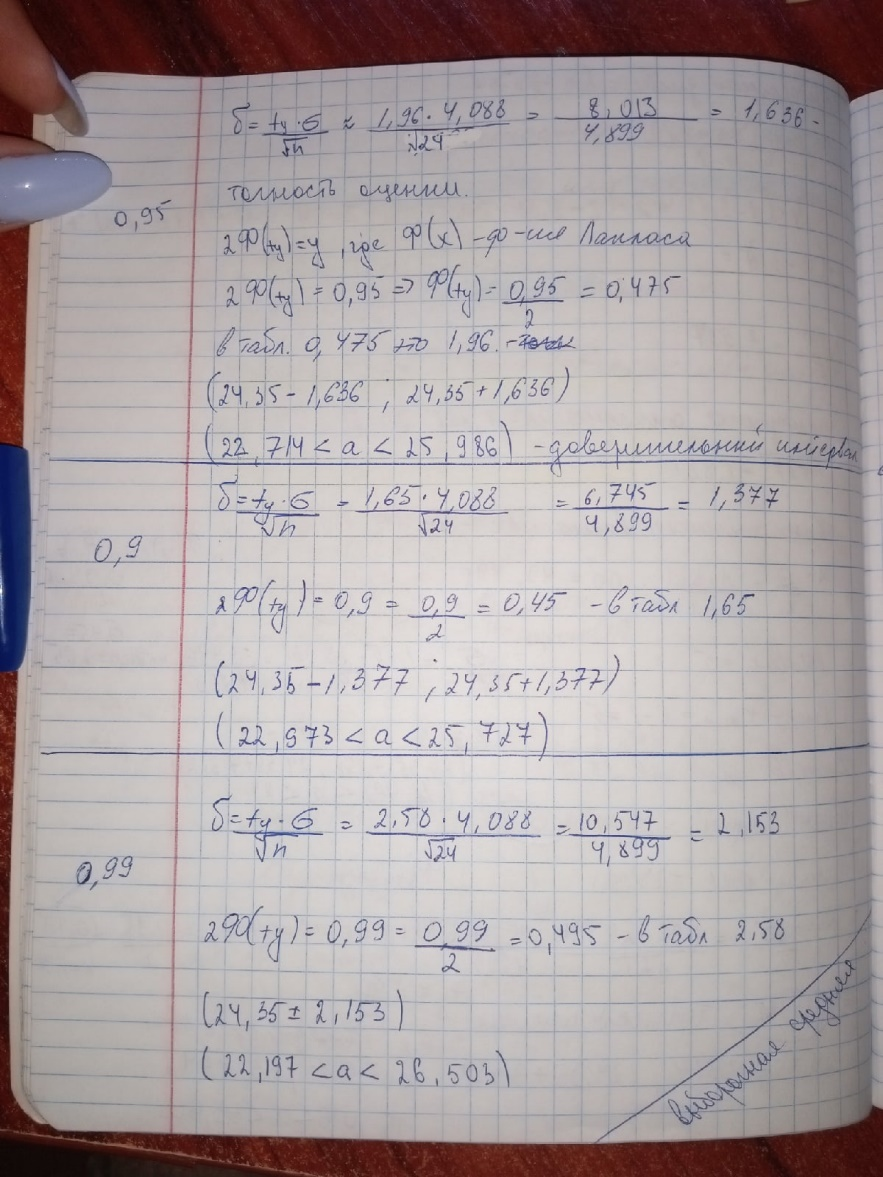 б = tγ·б/√n ≈ 1,96·4,088/√24 = 8,013/4,899 = 1,636 -
точность оценки.
0,95
2Ф(tγ)=γ, где Ф(х) -ф-ция Лапласа
2Ф(tγ) = 0,95 => Ф(tγ) = 0,95/2 = 0,475
в табл. 0,475 это 1,96.
(24,35 - 1,636 ; 24,35 + 1,636)
(22,714 < a < 25,986) - доверительный интервал
б = tγ·б/√n = 1,65·4,088/√24 = 6,745/4,899 = 1,377
0,9
2Ф(tγ) = 0,9 = 0,9/2 = 0,45 - в табл 1,65
(24,35 - 1,377 ; 24,35 + 1,377)
(22,973 < a < 25,727)
б = tγ·б/√n = 2,58·4,088/√24 = 10,547/4,899 = 2,153
0,99
2Ф(tγ) = 0,99 = 0,99/2 = 0,495 - в табл 2,58
(24,35 ± 2,153)
(22,197 < a < 26,503)
выборочная средняя